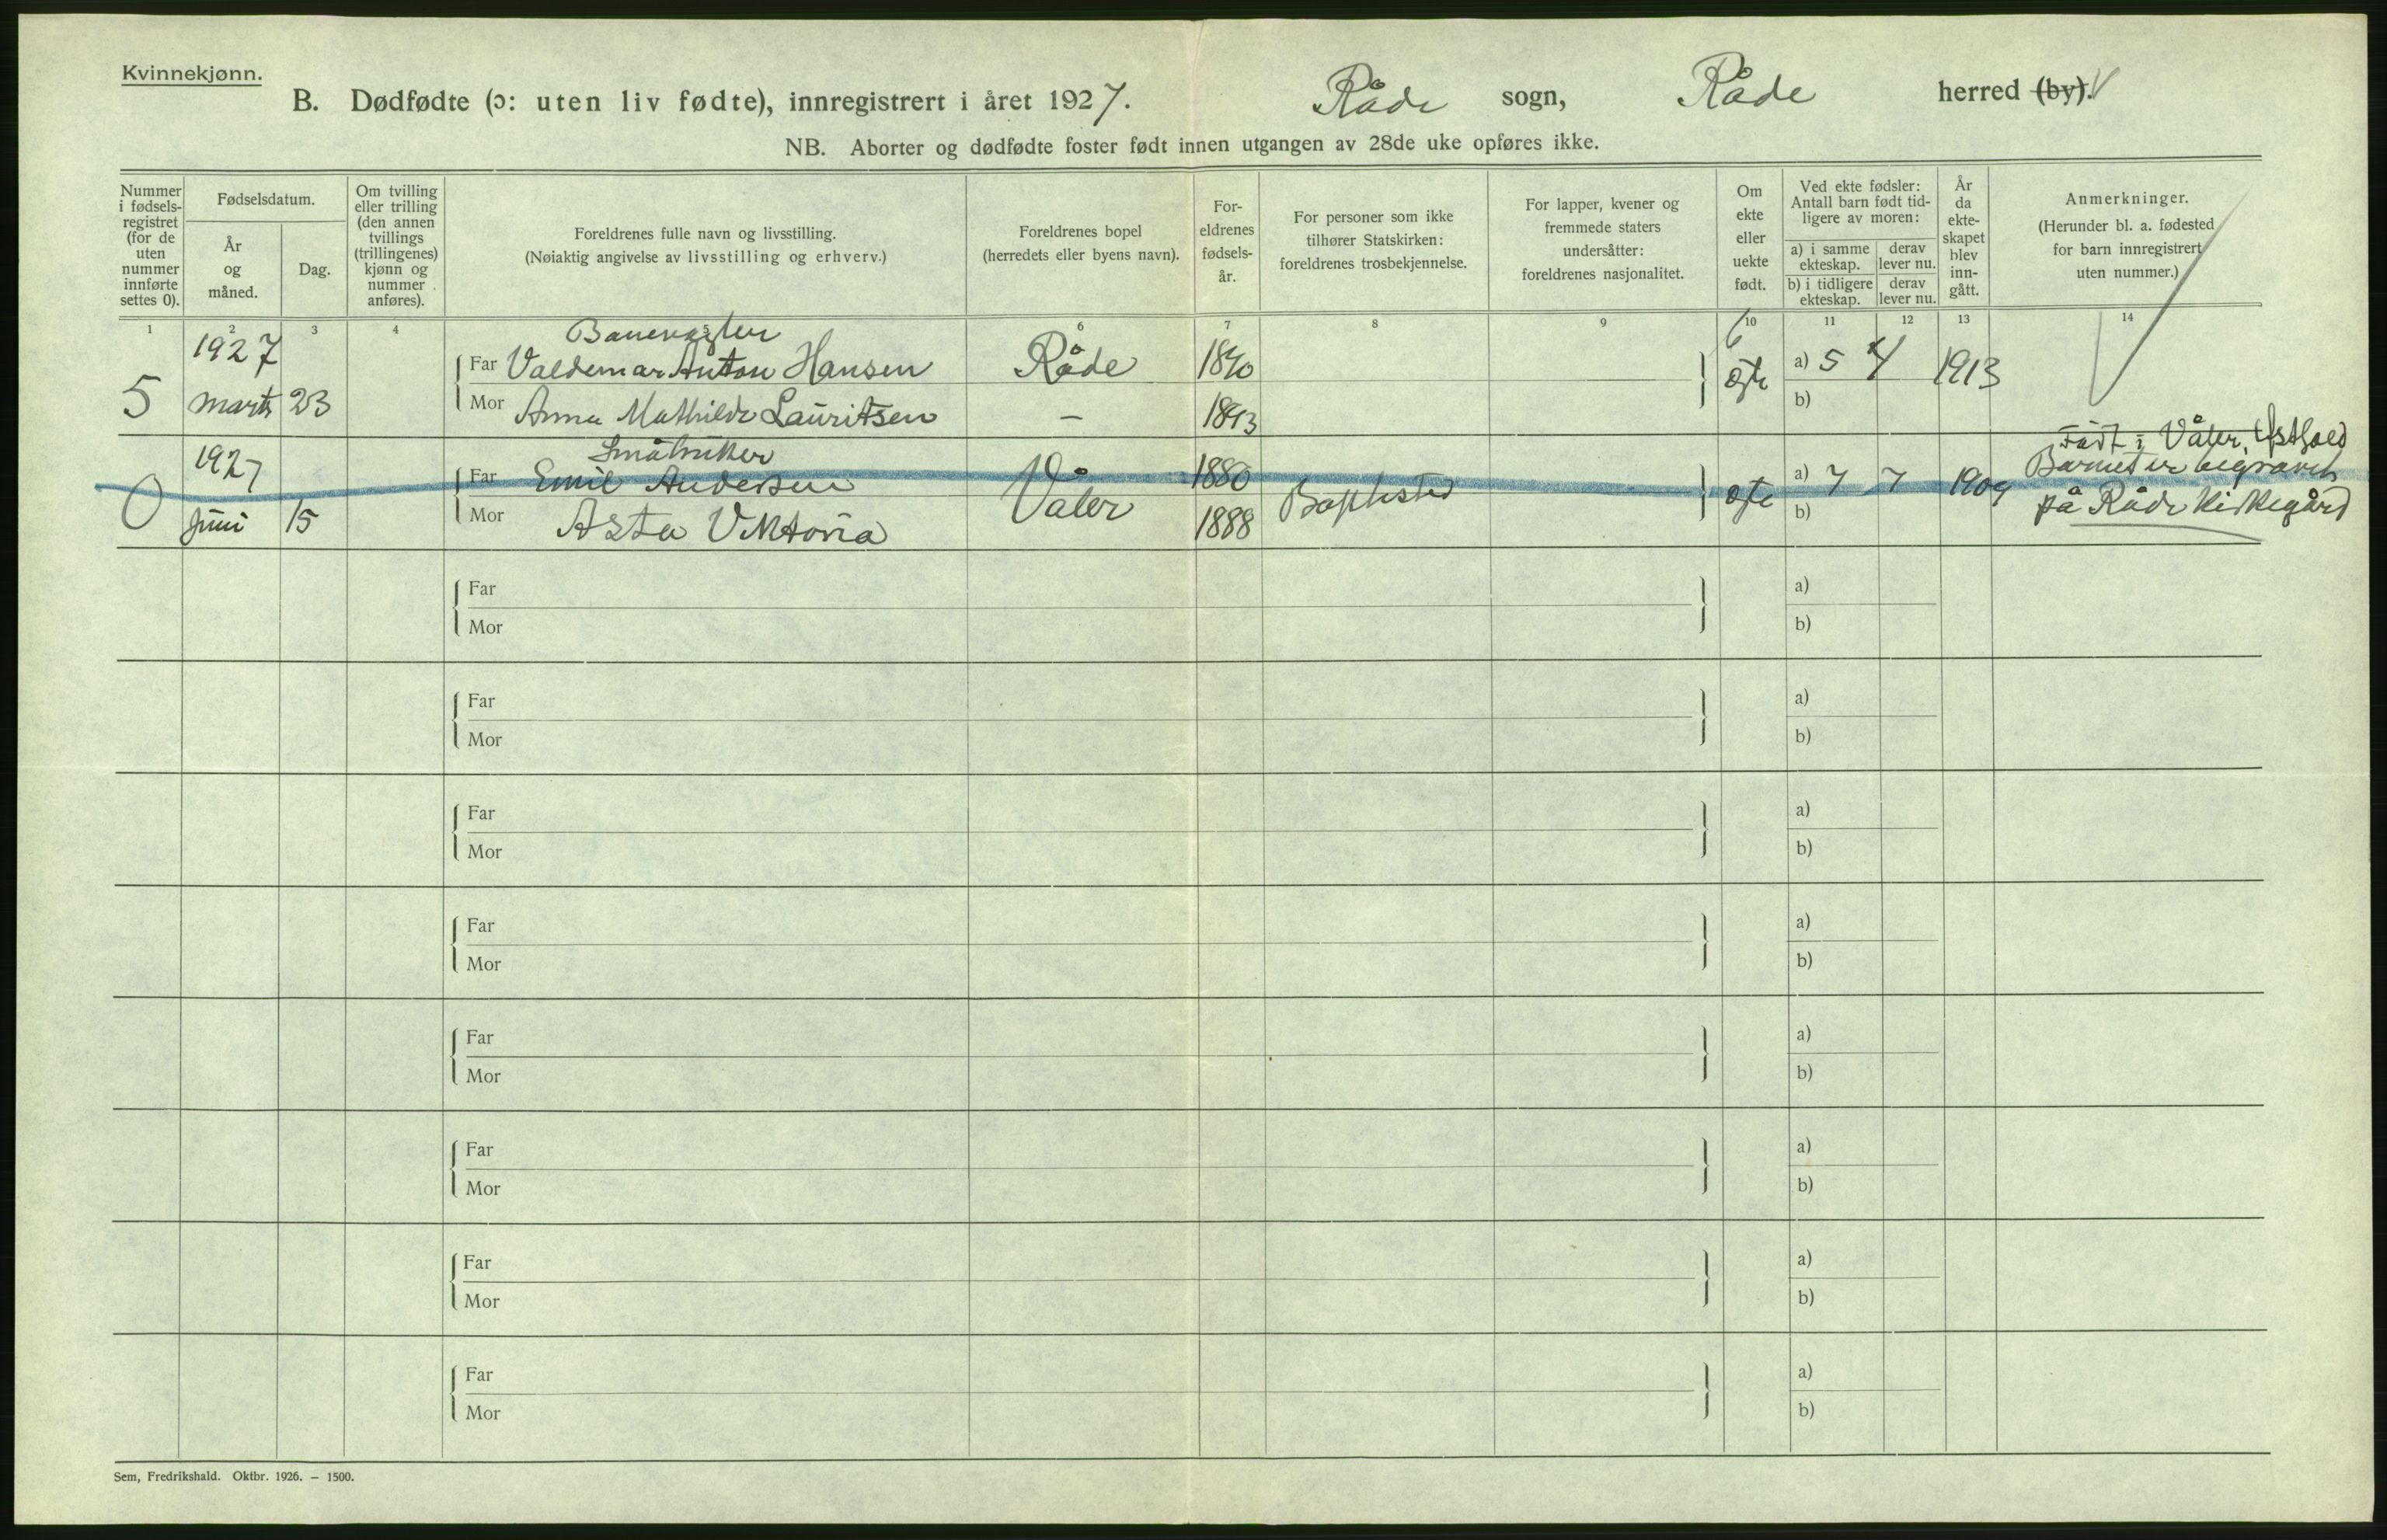 Kvinnekjønn.
B. Dødfødte (ɔ: uten liv fødte), innregistrert i året 1927. Råde sogn, Råde herred (by).
NB. Aborter og dødfødte foster født innen utgangen av 28de uke opføres ikke.
Nummer i fødsels-registret (for de uten nummer innførte settes 0).
Fødselsdatum.
År og måned.
Dag.
Om tvilling eller trilling (den annen tvillings (trillingenes) kjønn og nummer anføres).
Foreldrenes fulle navn og livsstilling.
(Nøiaktig angivelse av livsstilling og erhverv.)
Foreldrenes bopel
(herredets eller byens navn).
For-eldrenes fødsels-år.
For personer som ikke tilhører Statskirken: foreldrenes trosbekjennelse.
For lapper, kvener og fremmede staters undersåtter: foreldrenes nasjonalitet.
Om ekte eller uekte født.
Ved ekte fødsler: Antall barn født tid-ligere av moren:
a) i samme ekteskap. derav lever nu.
b) i tidligere ekteskap. derav lever nu.
År da ekte-skapet blev inn-gått.
Anmerkninger.
(Herunder bl. a. fødested for barn innregistrert uten nummer.)
1 2 3 4 5 6 7 8 9 10 11 12 13 14
Banevogter
1927 Far Valdemar Anton Hansen Råde a) 5 4 1913
5 marts 23 Mor Anna Mathilde Lauritsen – b)
ægte
Småbruker
1927 Far Emil Andersen Våler 1880 Baptisted ægte a) 7 7 1909
0 juni 15 Mor Asta Viktoria 1888 b)
Født i Våler, Østfold
Barnet er begravet
på Råde kirkegård
Far a)
Mor b)
Far a)
Mor b)
Far a)
Mor b)
Far a)
Mor b)
Far a)
Mor b)
Far a)
Mor b)
Far a)
Mor b)
Far a)
Mor b)
Sem, Fredrikshald. Oktbr. 1926. – 1500.